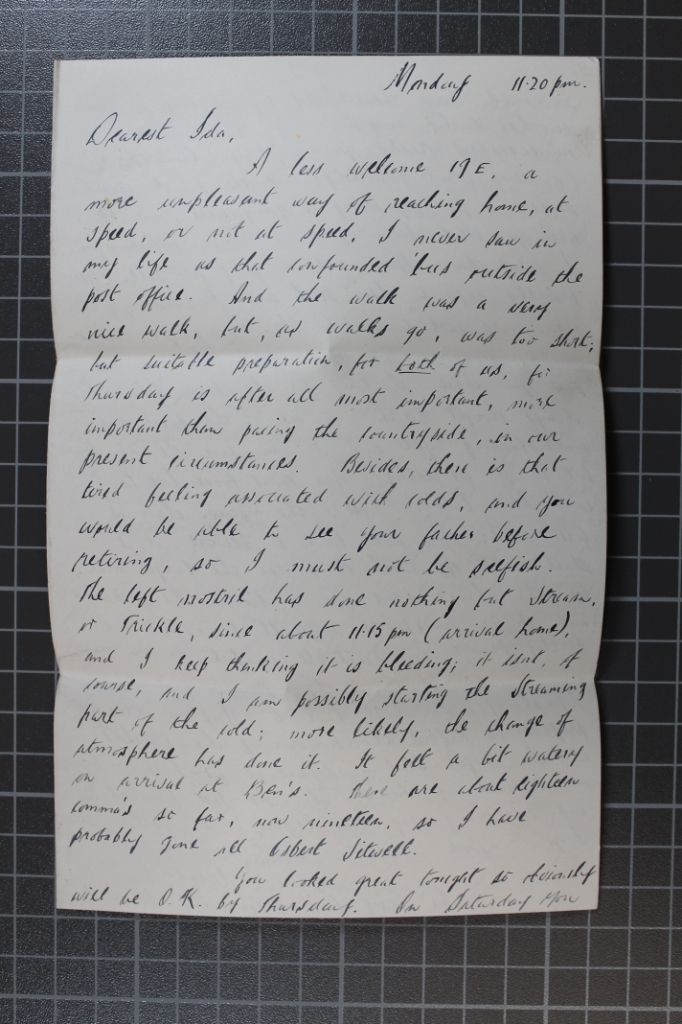 Monday 11.20 pm.
Dearest Ida,
A less welcome 19E, a
more unpleasant way of reaching home, at
speed, or not at speed, I never saw in
my life as that confounded 'bus outside the
post office. And the walk was a very
nice walk, but, as walks go, was too short;
but suitable preparation, for both of us, for
Thursday is after all most important, more
important than pacing the countryside, in our
present circumstances. Besides, there is that
tired feeling associated with colds, and you
would be able to see your father before
retiring, so I must not be selfish.
The left nostril has done nothing but stream,
or trickle, since about 11.15 pm (arrival home),
and I keep thinking it is bleeding; it isnt, of
course, and I am possibly starting the streaming
part of the cold; more likely, the change of
atmosphere has done it. It felt a bit watery
on arrival at Ben's. There are about eighteen
comma's so far, now nineteen, so I have
probably gone all Osbert Sitwell.
You looked great tonight so obviously
will be O.K. by Thursday. On Saturday you